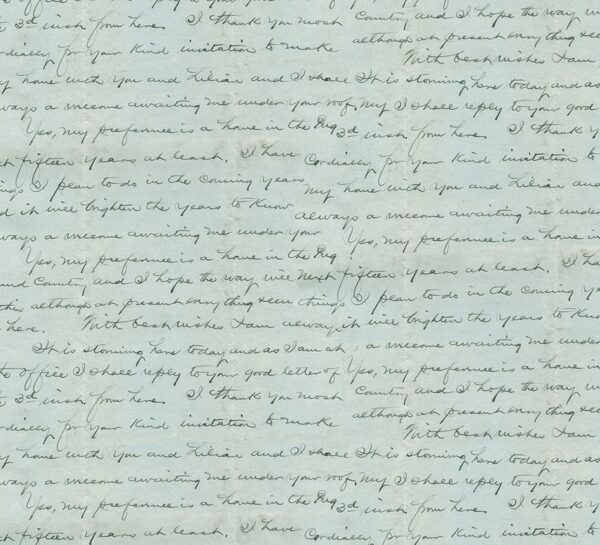 office I shall reply to your good letter of Yes, my preference is a home in
3d inst from here. I thank you most Country and I hope the way w
ordially for your kind invitation to make although at present everything see
With best wishes I am
y home with you and Lilian and I shall It is storming here today and as
ways a welcome awaiting me under your roof. my I shall reply to your good
Yes, my preference is a home in the Reg 3d inst from here. I thank y
t fifteen years at least. I have Cordially for your kind invitation to
ings I plan to do in the coming years my home with you and Lilian and
d it will brighten the years to know always a welcome awaiting me under
ways a welcome awaiting me under your Yes, my preference is a home in
Yes, my preference is a home in the Reg
und Country and I hope the way will next fifteen years at least. I ha
this although at present everything seem things I plan to do in the coming y
here. With best wishes I am always it will brighten the years to know
It is storming here today and as I am at a welcome awaiting me under
office I shall reply to your good letter of Yes, my preference is a home in
3d inst from here. I thank you most Country and I hope the way w
ordially for your kind invitation to make although at present everything see
With best wishes I am
y home with you and Lilian and I shall It is storming here today and as
ways a welcome awaiting me under your roof. my I shall reply to your good
Yes, my preference is a home in the Reg 3d inst from here. I thank y
t fifteen years at least. I have Cordially for your kind invitation to